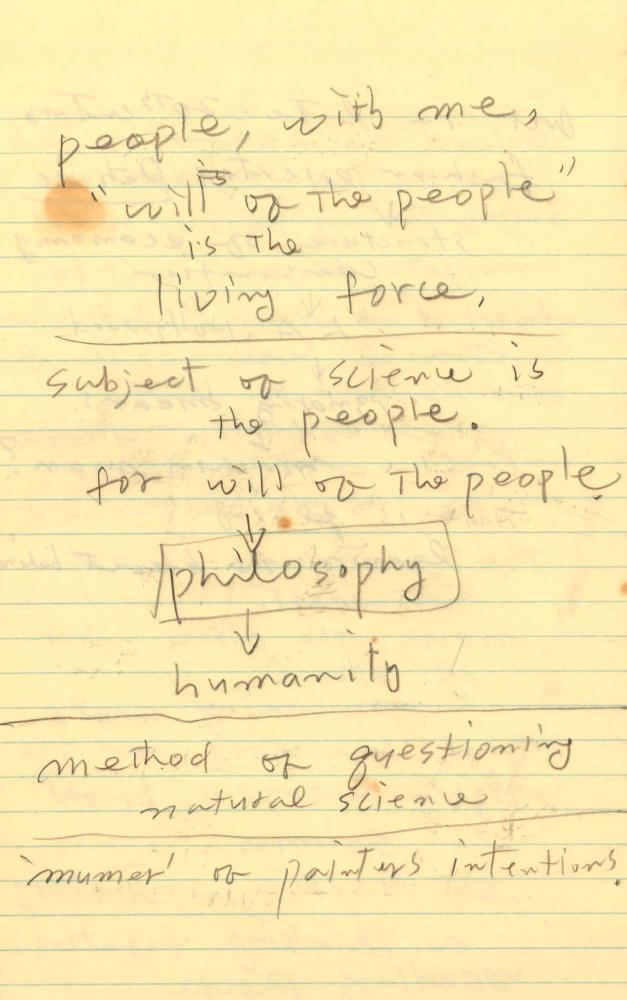 people, with me,
"will is of the people"
is the
living force,
subject of science is
the people.
for will of the people.
philosophy
humanity
method of questioning
natural science
'mumer' of painters intentions.